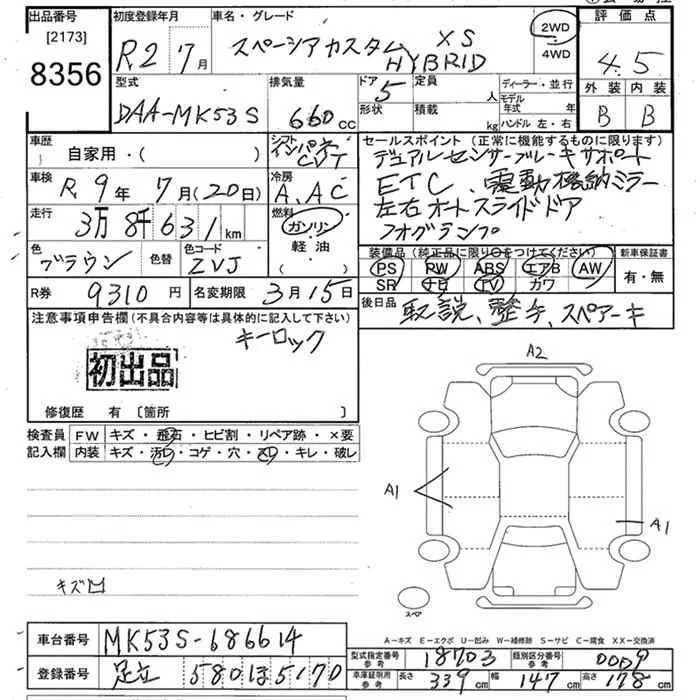 出品番号
[2173]
8356
初度登録年月
R2 7月
車名・グレード
スペーシアカスタム XS
HYBRID
2WD
4WD
評価点
4.5
外装 内装
B B
型式
DAA-MK53S
排気量
660cc
ドア
5
形状
定員
人
積載
kg
ディーラー・並行
モデル年式 年
ハンドル 左・右
車歴
自家用・( )
シフト
インパネ
CVT
車検
R 9年 7月(20日)
冷房
A.AC
走行
3万8千631km
燃料
ガソリン
軽油
( )
色
ブラウン
色替
色コード
ZVJ
R券 9310円
名変期限 3月15日
セールスポイント (正常に機能するものに限ります)
デュアルセンサーブレーキサポート
ETC、電動格納ミラー
左右オートスライドドア
フォグランプ
装備品 (純正品に限り○をつけてください)
PS PW ABS エアB AW
SR ナビ TV カワ
新車保証書
有・無
後日品
取説、整手、スペアーキ
注意事項申告欄(不具合内容等は具体的に記入して下さい)
キーロック
初出品
修復歴 有 〔箇所 〕
検査員
記入欄
FW キズ・飛石・ヒビ割・リペア跡・×要
内装 キズ・汚レ・コゲ・穴・スレ・キレ・破レ
キズ凹
A2
A1
A1
スペア
A-キズ E-エクボ U-凹み W-補修跡 S-サビ C-腐食 XX-交換済
車台番号 MK53S-686614
登録番号 足立 580ほ5170
型式指定番号
参考
18703
類別区分番号
参考
0009
車庫証明用
参考
長さ 339cm 幅 147cm 高さ 178cm